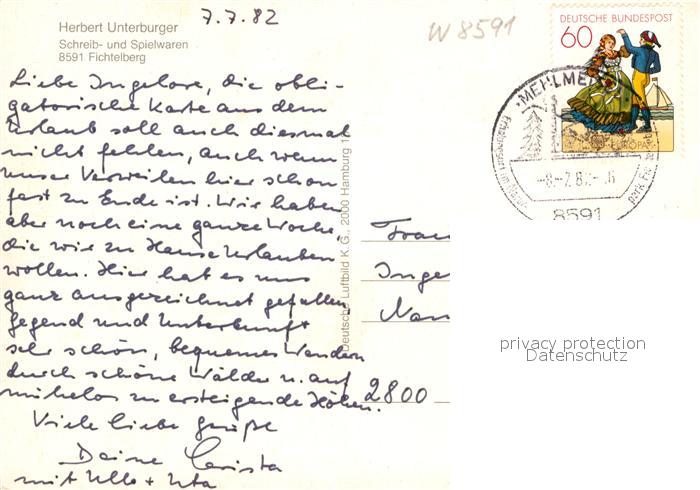 7.7.82
W 8591
Herbert Unterburger
Schreib- und Spielwaren
8591 Fichtelberg
Liebe Ingelore, die obli-
gatorische Karte aus dem
Urlaub soll auch diesmal
nicht fehlen, auch wenn
unser Verweilen hier schon
fast zu Ende ist. Wir haben
aber noch eine ganze Woche,
die wir zu Hause Urlauben
wollen. Hier hat es uns
ganz ausgezeichnet gefallen,
Gegend und Unterkunft
sehr schön, bequemes Wandern
durch schöne Wälder u. auf
mühelos zu ersteigende Höhen.
Viele liebe Grüße
Deine Carista
mit Ullo + Uta
Deutsche Luftbild K.G., 2000 Hamburg 1
DEUTSCHE BUNDESPOST
60
EUROPA
MEHLME
-8.-7.82-16
8591
Frau
Inge
Nan
2800
privacy protection
Datenschutz